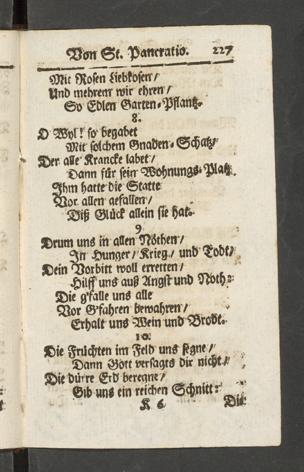 Von St. Pancratio. 227
Mit Rosen Liebkosen/
Und mehrenr wir ehren/
So Edlen Garten-Pflantz.
8.
O Wyl! so begabet
Mit solchem Gnaden-Schatz/
Der alle Krancke labet/
Dann für sein Wohnungs-Platz
Ihm hatte die Statte
Vor allen gefallen/
Diß Glück allein sie hat.
9.
Drum uns in allen Nöthen/
In Hunger/ Krieg/ und Todt/
Dein Vorbitt woll erretten/
Hilff uns auß Angst und Noth:
Die g'falle uns alle
Vor G'fahren bewahren/
Erhalt uns Wein und Brodt.
10.
Die Früchten im Feld uns segne/
Dann Gott versagts dir nicht/
Die dürre Erd beregne/
Gib uns ein reichen Schnitt:
K 6 Die